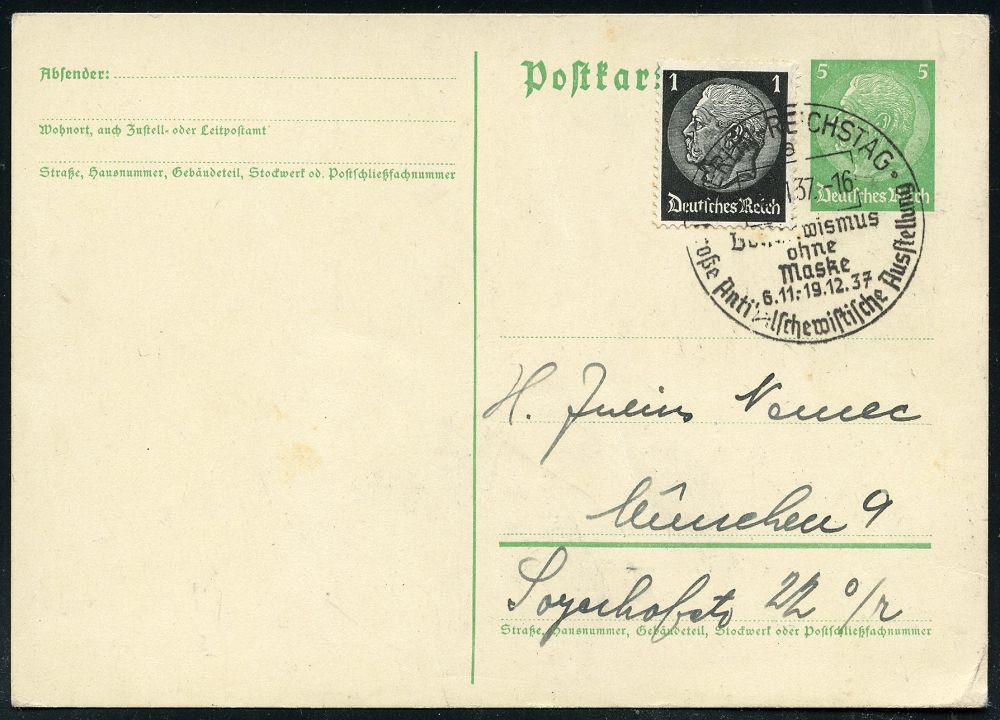 Absender:
Wohnort, auch Zustell- oder Leitpostamt
Straße, Hausnummer, Gebäudeteil, Stockwerk od. Postschließfachnummer
Postkar
1 1
Deutsches Reich
5 5
Deutsches Reich
REICHSTAG
a
37.-16
wismus
ohne
Maske
6.11.-19.12.37
oße Anti lschewistische Ausstellung
H. Julius Nemec
München 9
Soyerhofstr 22 o/r
Straße, Hausnummer, Gebäudeteil, Stockwerk oder Postschließfachnummer